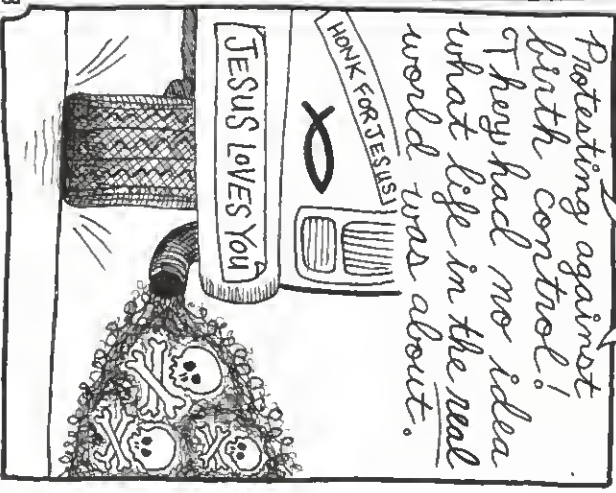 Protesting against
birth control!
They had no idea
what life in the real
world was about.
HONK FOR JESUS!
JESUS LOVES YOU